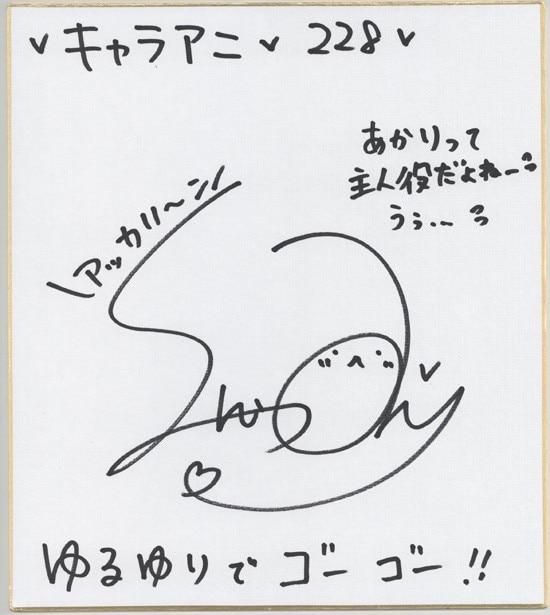 ♥キャラアニ♥ 228♥
あかりって
主人役だよねーっ
うぅ…っ
\アッカリ〜ン/
ゆるゆりで ゴーゴー!!